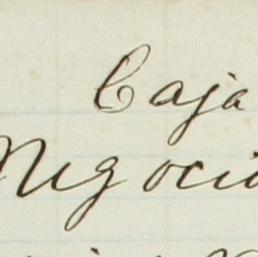 Caja
Negocio